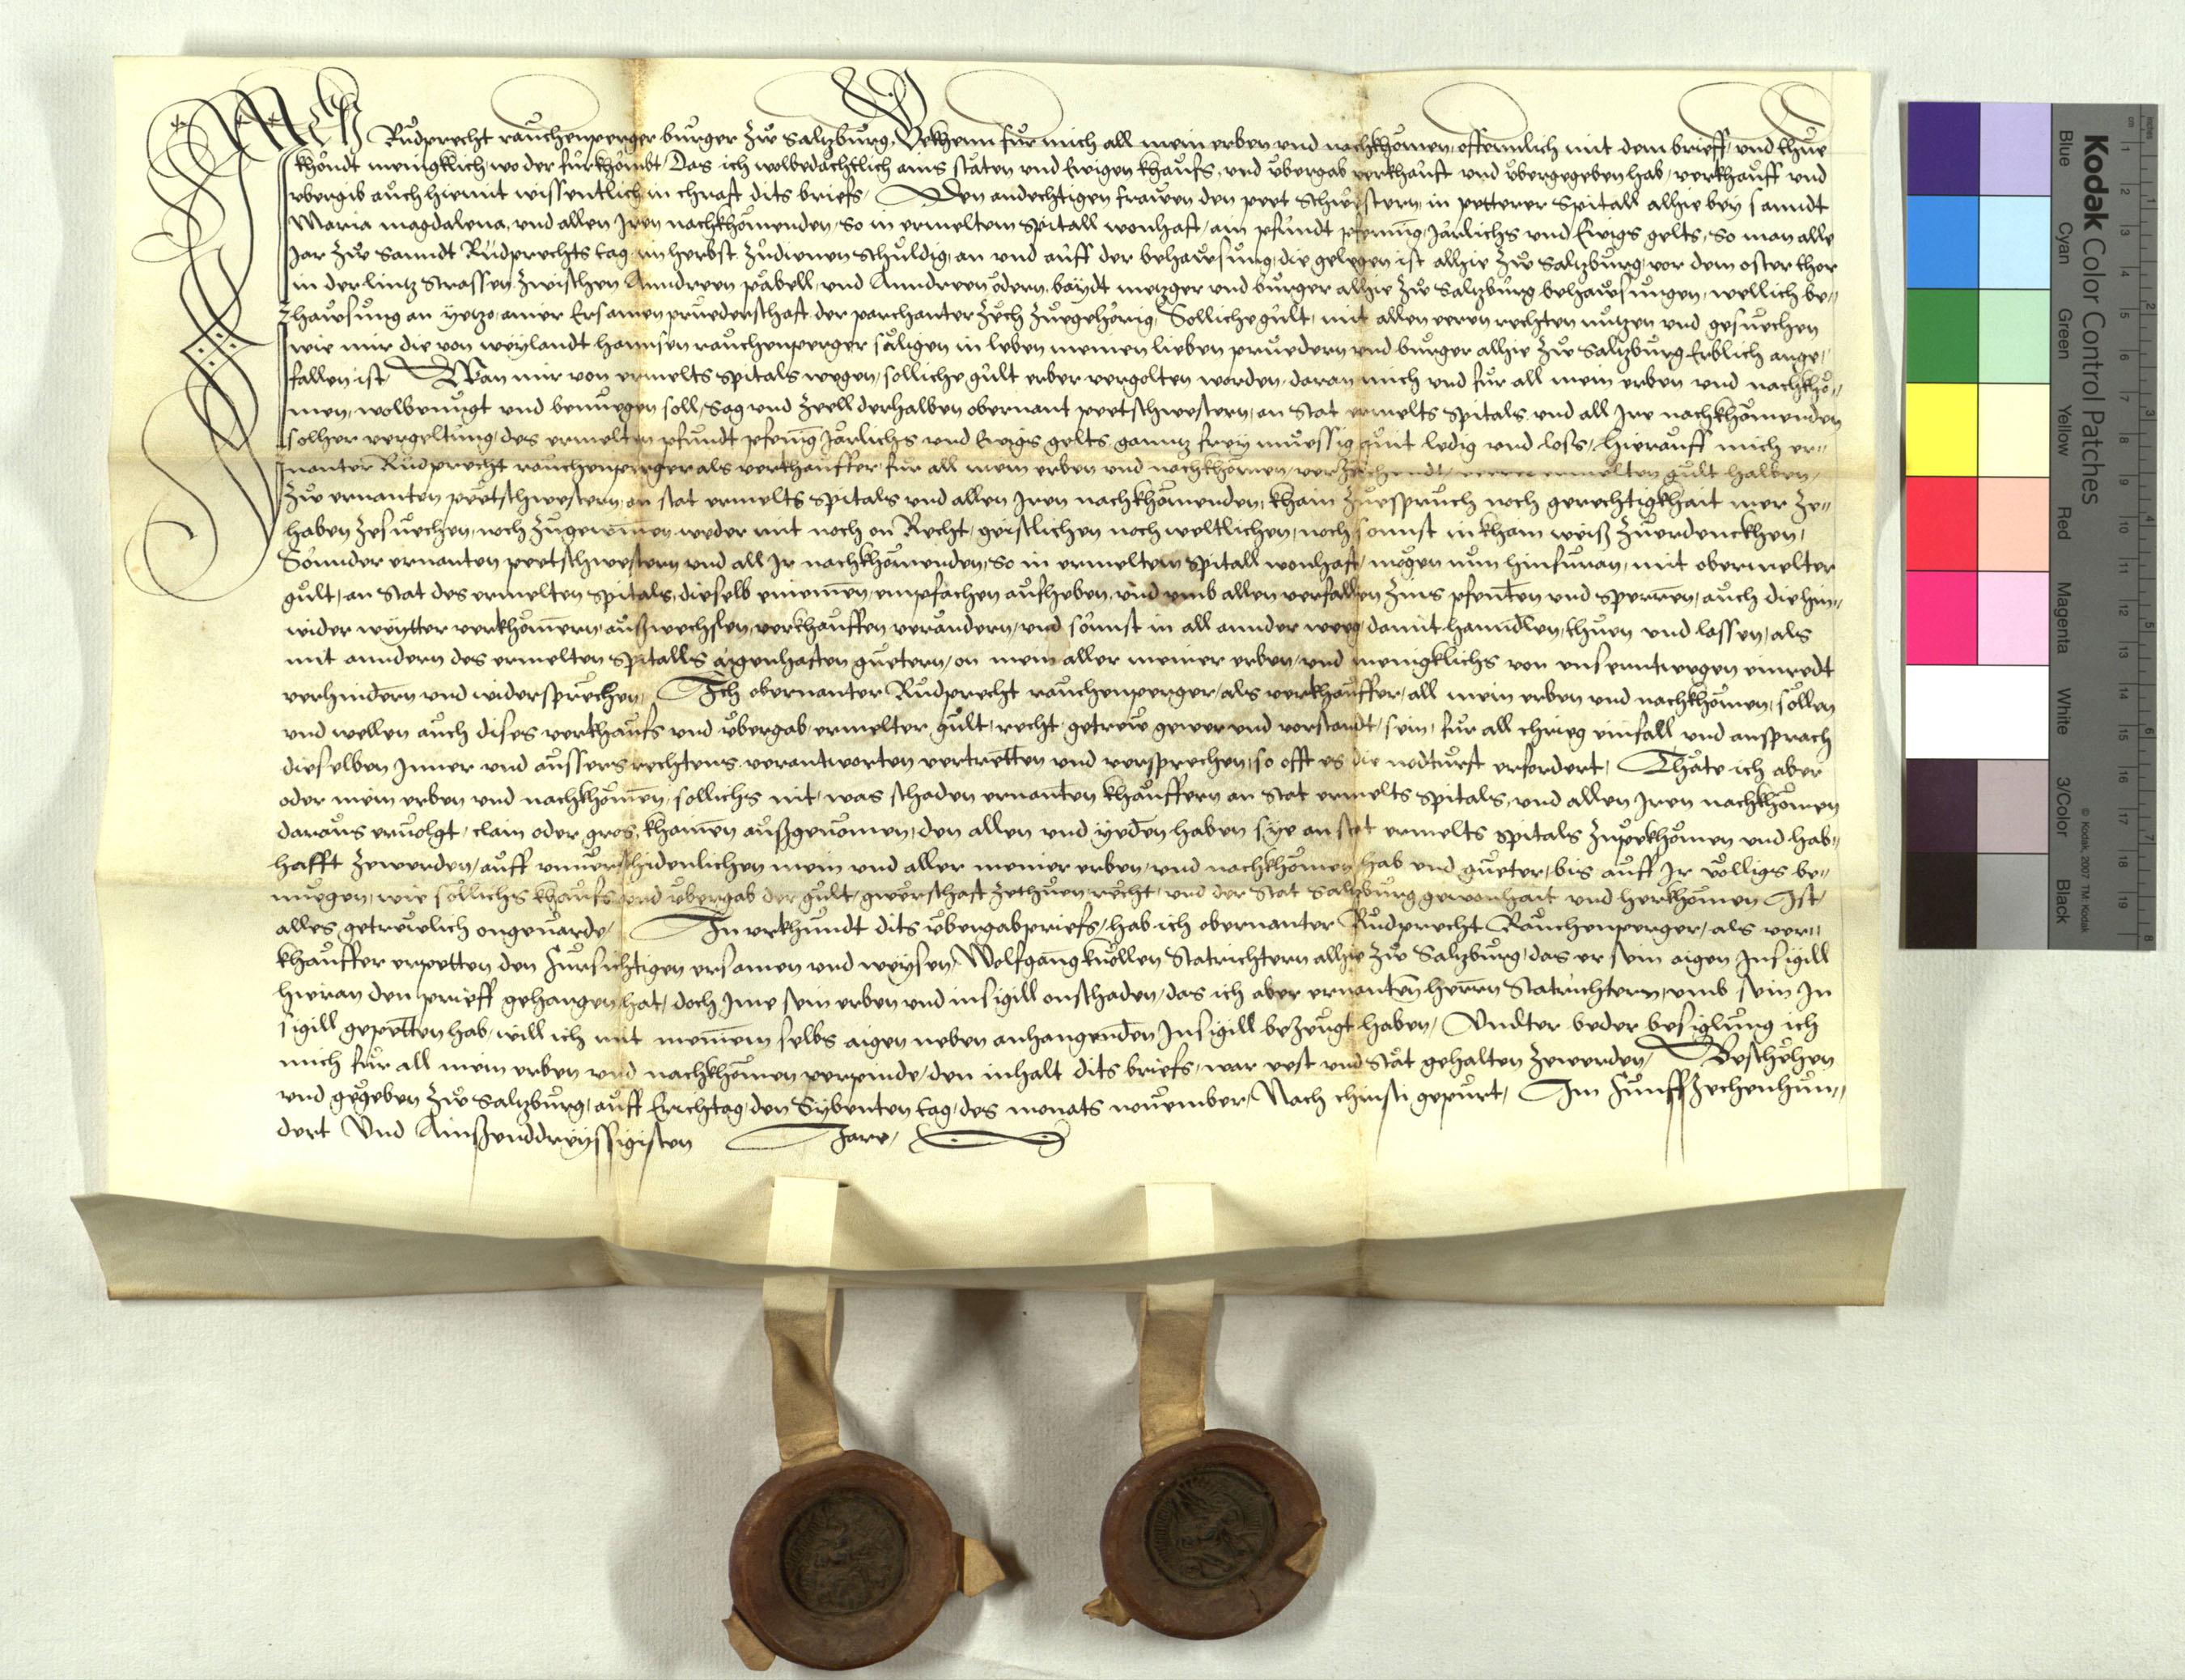 ICh Rŭdprecht raŭchenperger bŭrger zŵ Saltzbŭrg, Bekhenn fŭr mich all mein erben vnd nachkhomen, offennlich mit dem brieff, vnd thŭe
khŏndt menigklich, wo der fŭrkhŏmbt, Das ich wolbedăchtlich ains stăten vnd Ewigen khaŭfs, vnd ŭbergab verkhaŭft vnd ŭbergegeben hab, verkhaŭff vnd
vbergib aŭch hiemit wissentlich in chraft dits briefs, Den andechtigen fraŵen den peet Schwestern, in petterer Spitall alhie bey sanndt
Maria magdalena, vnd allen Iren nachkhŏmenden, so in ermeltem Spitall wonhaft, ain pfundt pfening, Járlichs vnd Ewigs gelts, so man alle
Jar zŵ sanndt Rŭdprechts tag im herbst zŭdienen schŭldig, an vnd aŭff der behaŵsŭng, die gelegen ist alhie zŵ Saltzbŭrg, vor dem oster thor
in der lintz strassen zwischen Anndreen păbell, vnd Anndreen ödern, baydt metzger vnd bŭrger alhie zŵ Saltzbŭrg behaŵsŭngen, wellich be¬
haŵsŭng an yetzo, ainer Ersamen prŭederschaft der parchanter zech zŭegehŏrig, Solliche gŭlt, mit allen eeren rechten nŭtzen vnd gesŭechen
wie mir die von weylandt hannsen raŭchenperger săligen in leben meinen lieben prŭedern vnd bŭrger alhie zŵ Saltzbŭrg Erblich ange¬
fallen ist, Wan mir von ermelts spitals wegen, solliche gŭlt erber vergolten worden, daran mich vnd fŭr all mein erben vnd nachkhŏ¬
men, wolbenŭgt vnd benŭegen soll, Sag vnd zeell derhalben obernant peetschwestern, an stat ermelts spitals, vnd all Ire nachkhŏmenden
solher vergeltŭng, des ermelten pfŭndt pfening Járlichs vnd Ewigs gelts ganntz frey mŭessig qŭit ledig vnd loss, Hieraŭff mich er¬
nanter Rŭdprecht raŭchenperger als verkhaŭffer, fŭr all mein erben vnd nachkhŏmen, ermelten gŭlt halben,
zŵ ernanten peetschwestern, an stat ermelts spitals vnd allen Iren nachkhŏmenden, khain zŭesprŭch noch gerechtigkhait mer ze¬
haben zesŭechen, noch zŭgewinnen weder mit noch on Recht, geistlichen noch weltlichen, noch sonnst in khain weiß zŭerdenckhen,
Sŏnnder ernanten peetschwestern vnd all Ir nachkhŏmenden, so in ermeltem spitall wonhaft, mŏgen nŭn hinfŭran, mit obermelter
gŭlt, an stat des ermelten spitals, dieselb einemen, empfachen aŭfheben, vnd vmb allen verfallen zins pfenten vnd sperren, aŭch die hin¬
wider weytter verkhŏmern, aŭßwechslen, verkhaŭffen verăndern, vnd sŏnnst in all annder weeg, damit hanndlen, thŭen vnd lassen, als
mit anndern des ermelten spitalls aigenhaften gŭetern, on mein aller meiner erben, vnd menigklichs von vnsernntwegen einredt
verhindern vnd widersprechen, Ich obernanter Rŭdprecht raŭchenperger, als verkhaŭffer, all mein erben vnd nachkhŏmen, sollen
vnd wellen aŭch dises verkhaŭfs vnd ŭbergab, ermelter gŭlt, recht getreŵ gewer vnd vorstandt, sein, fŭr all chrieg einfall vnd ansprach
dieselben Inner vnd aŭssers rechtens verantworten vertretten vnd versprechen, so offt es die nodtŭrft erfordert, Thăte ich aber
oder mein erben vnd nachkhŏmen, sollichs nit, was schaden ernanten khaŭffern an stat ermelts spitals, vnd allen Iren nachkhŏmen
daraŭs ervolgt, clain oder gros, khainen aŭßgenŏmen, den allen vnd yeden haben sye an stat ermelts spitals zŭpekhŏmen vnd hab¬
hafft zewerden, aŭff vnŭerschidenlichen mein vnd aller meiner erben, vnd nachkhŏmen hab vnd gŭeter, bis aŭff Ir vŏlligs be¬
nŭegen, wie sollichs khaŭfs vnd ŭbergab der gŭlt, gwerschaft zethŭen recht, vnd der Stat Saltzbŭrg gewonhait vnd herkhŏmen Ist,
alles getreŵlich ongeuărde, In vrkhŭndt dits ŭbergabpriefs, hab ich obernanter Rŭdprecht Raŭchenperger, als ver¬
khaŭffer erpetten den Fŭrsichtigen ersamen vnd weysen, Wolfgang kŭollen Statrichtern alhie zŵ Saltzbŭrg, das er sein aigen Insigill
hieran den prieff gehangen hat, doch Ime sein erben vnd insigill onschaden, das ich aber ernanten herrn Statrichtern, vmb sein In
sigill gepetten hab, will ich mit meinem selbs aigen neben anhangenden Insigill bezeŭgt haben, Vndter beder besiglŭng ich
mich fŭr all mein erben vnd nachkhŏmen verpinde, den inhalt dits briefs, war vest vnd stăt gehalten zewerden, Beschehen
vnd gegeben zŵ Saltzbŭrg, aŭff Erichtag, den Sybenten tag, des monats nouember, Nach christi gepŭrt, Im Fŭnffzechenhŭn¬
dert Vnd Ainßenddreyssigisten Jare,
Kodak Color Control Patches
Blue Cyan Green Yellow Red Magenta White 3/Color Black
© Kodak, 2007 TM: Kodak